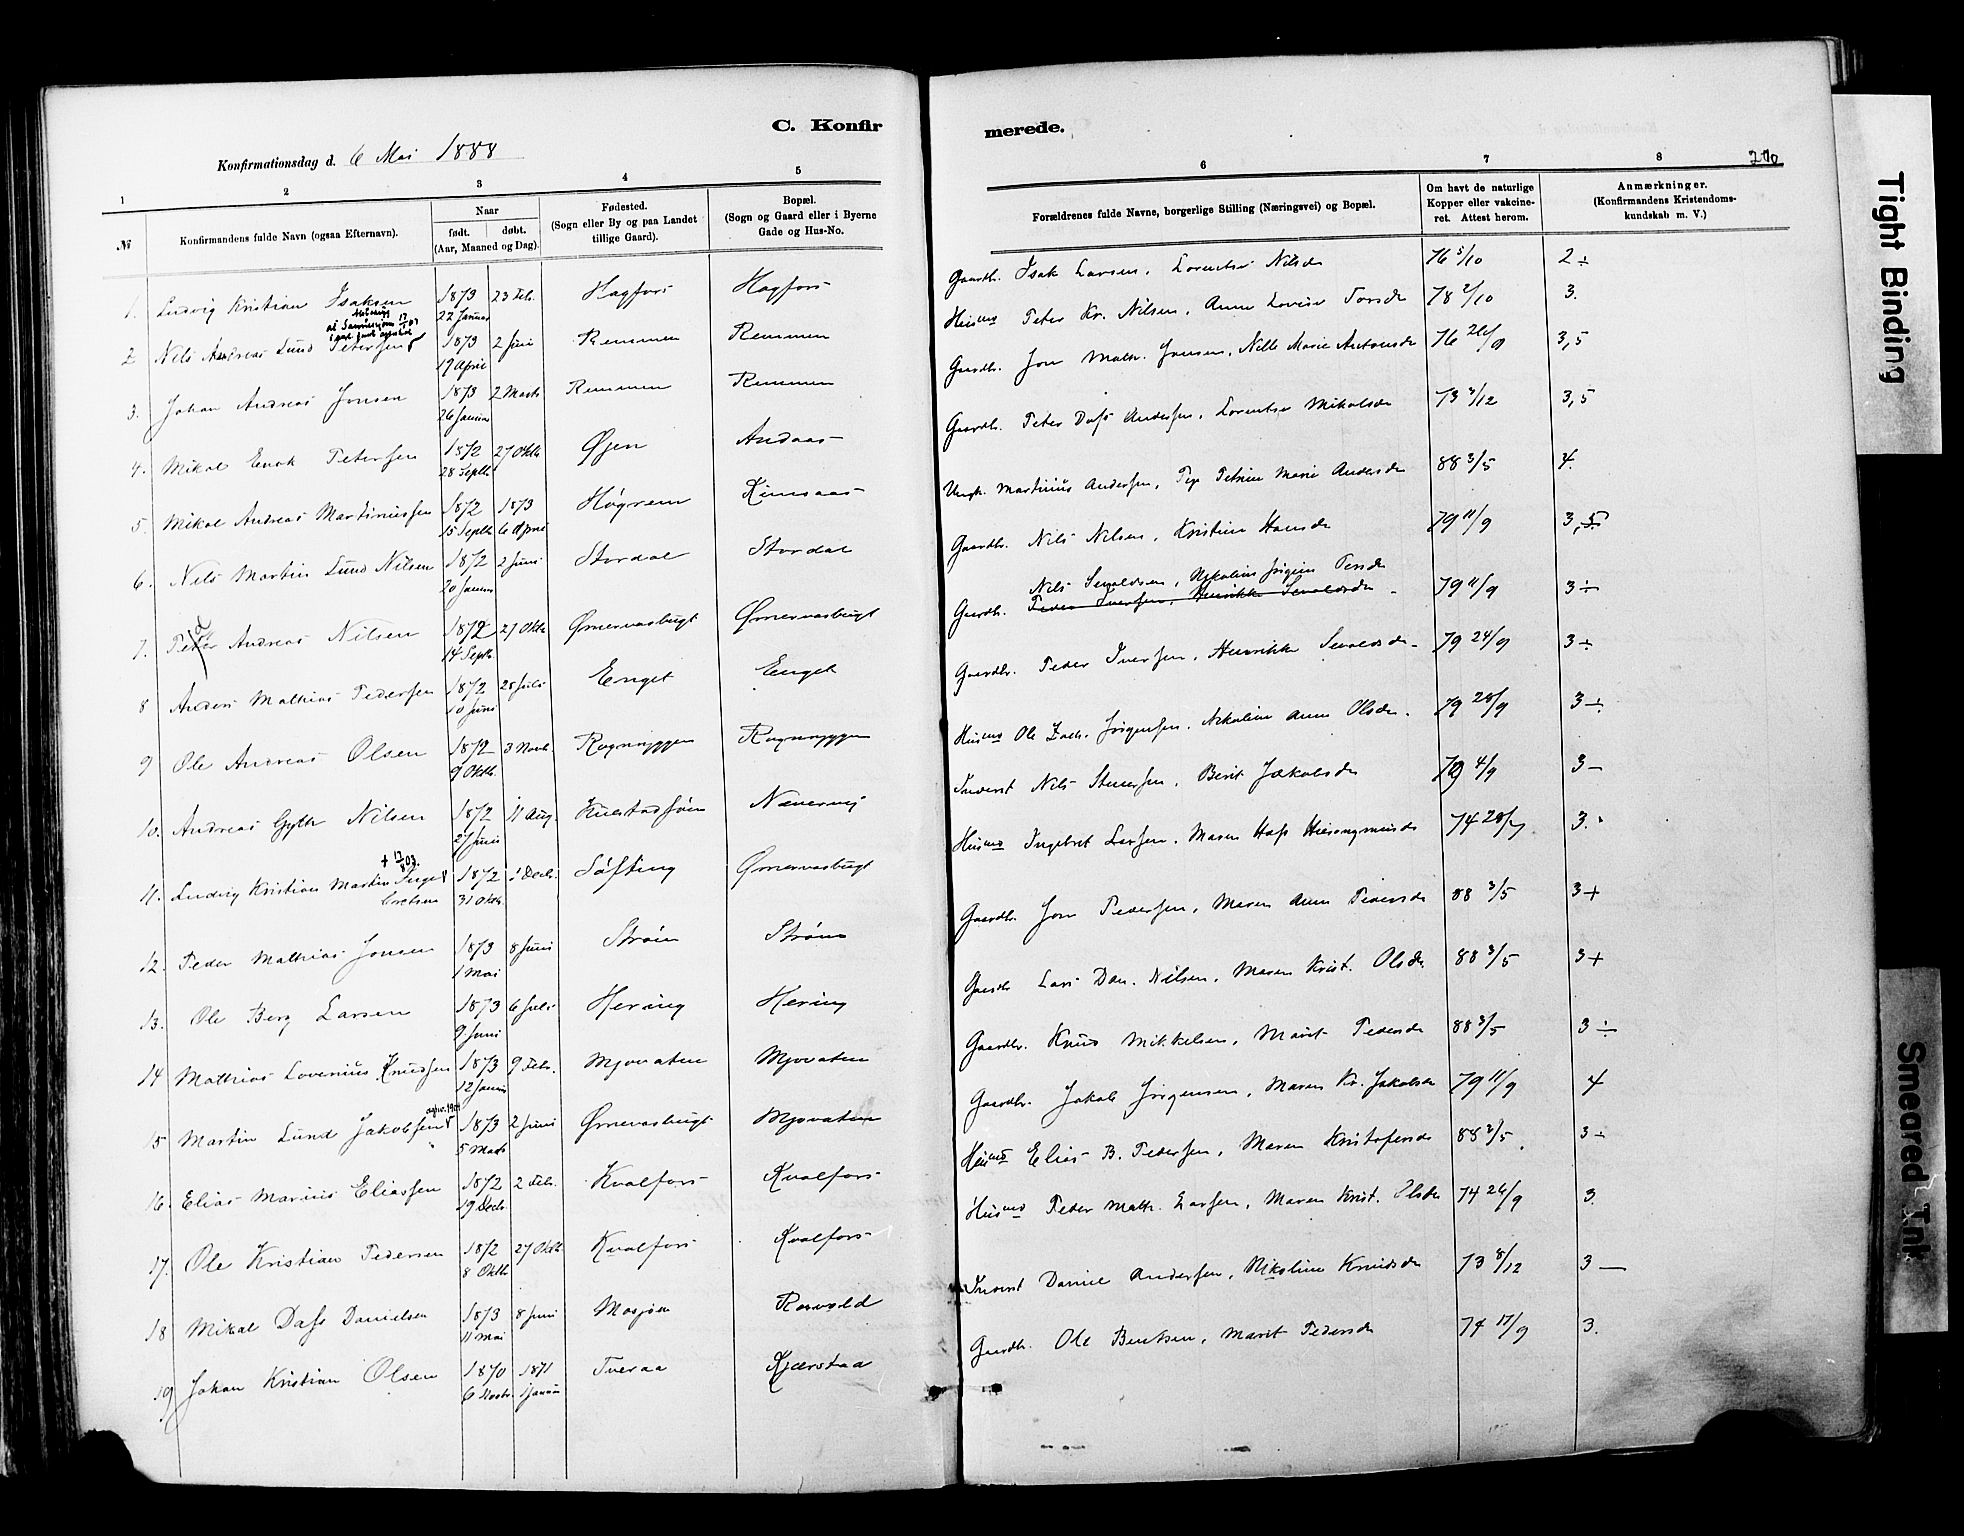 C. Konfir
Konfirmationsdag d. 6 Mai 1888
1 2 3 4 5
№ Konfirmandens fulde Navn (ogsaa Efternavn). Naar født. døbt. (Aar, Maaned og Dag). Fødested. (Sogn eller By og paa Landet tillige Gaard). Bopæl. (Sogn og Gaard eller i Byerne Gade og Hus-No.
1. Ludvig Kristian Isaksen 1873 22 Januar 23 Feb. Hagfors Hagfors
2. Nils Andreas Lund Petersen 1873 19 April 2 Juni Remmen Remmen
3. Johan Andreas Jonsen 1873 26 Januar 2 Marts Remmen Remmen
4. Mikal Enok Petersen 1872 28 Septbr 27 Oktb Øjen Andaas
5. Mikal Andreas Martinussen 1872 15 Septb 1873 6 April Høgrem Remsaas
6. Nils Martin Lund Nilsen 1872 20 2 Juni Stordal Stordal
7. Andreas Nilsen 1872 14 Septb. 27 Oktb Ømervasbugt Ømervasbugt
8 Anders Mathias Pedersen 1872 10 Juni 28 Juli Enget Enget
9 Ole Andreas Olsen 1872 9 Oktb. 3 Novb. Rognryggen Rognryggen
10. Andreas Gyth Nilsen 1872 27 Juni 11 Aug.
+ 17/8 03.
11. Ludvig Kristian Martin Inge 1872 31 Oktb 1 Decb. Søfting Ømervasbugt
bretsen
12. Peder Mathias Jonsen 1873 1 Mai 8 Juni Strøm Strøm
13. Ole Berg Larsen 1873 9 Juni 6 Juli Hering Hering
14 Mathias Lovenius Knudsen 1873 12 Januar 9 Feb. Mjovatn Mjovatn
15 Martin Lund Jakobsen 1873 5 Marts 2 Juni Ømervasbugt Mjovatn
16. Elias Marius Eliassen 1872 19 Decb. 2 Feb. Kvalfors Kvalfors
17. Ole Kristian Pedersen 1872 8 Oktb 27 Oktb. Kvalfors Kvalfors
18 Mikal Dass Danielsen 1873 11 Mai 8 Juni Mosjøen Rosvold
19 Johan Kristian Olsen 1870 6 Novbr. 1871 1 Januar Tveraa Kjærstad
merede.
6 7 8 200
Forældrenes fulde Navne, borgerlige Stilling (Næringsvei) og Bopæl. Om havt de naturlige Kopper eller vakcineret. Attest herom. Anmærkninger. (Konfirmandens Kristendomskundskab m. V.)
Gaardbr. Isak Larsen, Lorentse Nilsd 76 5/10 2 ÷
Husmd Peter Kr. Nilsen, Anne Lovise Torsd 78 2/10 3.
Gaardbr. Jon Math. Jonsen, Nille Marie Antonsd 76 26/9 3,5
Gaardbr. Peter Dass Andersen, Lorentse Mikalsd 73 3/12 3,5
Ungk. Martinius Andersen, Pige Petrine Marie Andersd 88 3/5 4.
Gaardbr. Nils Nilsen, Kristine Hansd 79 11/9 3,5
Nils Sevaldsen, Nikoline Jørgine Persd
Gaardbr. Peder Iversen, Henrikke Sevaldsd 79 11/9 3 ÷
Gaardbr. Peder Iversen, Henrikke Sevaldsd 79 24/9 3 ÷
Husmd Ole Zach. Jørgensen, Nikoline Anne Olsd. 79 28/9 3 ÷
Inderst Nils Stenersen, Berit Jakobsd 79 4/9 3 -
Husmd Ingebret Larsen, Maren Hass Hieronymusd 74 28/7 3.
Gaardbr. Jon Pedersen, Maren Anne Pedersd 88 3/5 3 +
Gaardbr Lars Dan. Nilsen, Maren Krist. Olsd 88 3/5 3 +
Gaardbr. Knud Mikkelsen, Marit Pedersd 88 3/5 3 ÷
Gaardbr. Jakob Jørgensen, Maren Kr. Jakobsd 79 11/9 4
Husmd Elias B. Pedersen, Maren Kristofersd 88 3/5 3 ÷
Husmd Peder Math. Larsen, Maren Krist. Olsd 74 26/9 3.
Inderst Daniel Andersen, Nikoline Knudsd 73 8/12 3 —
Gaardbr. Ole Bentsen, Marit Pedersd 74 17/9 3.
Tight Binding
Smeared Ink